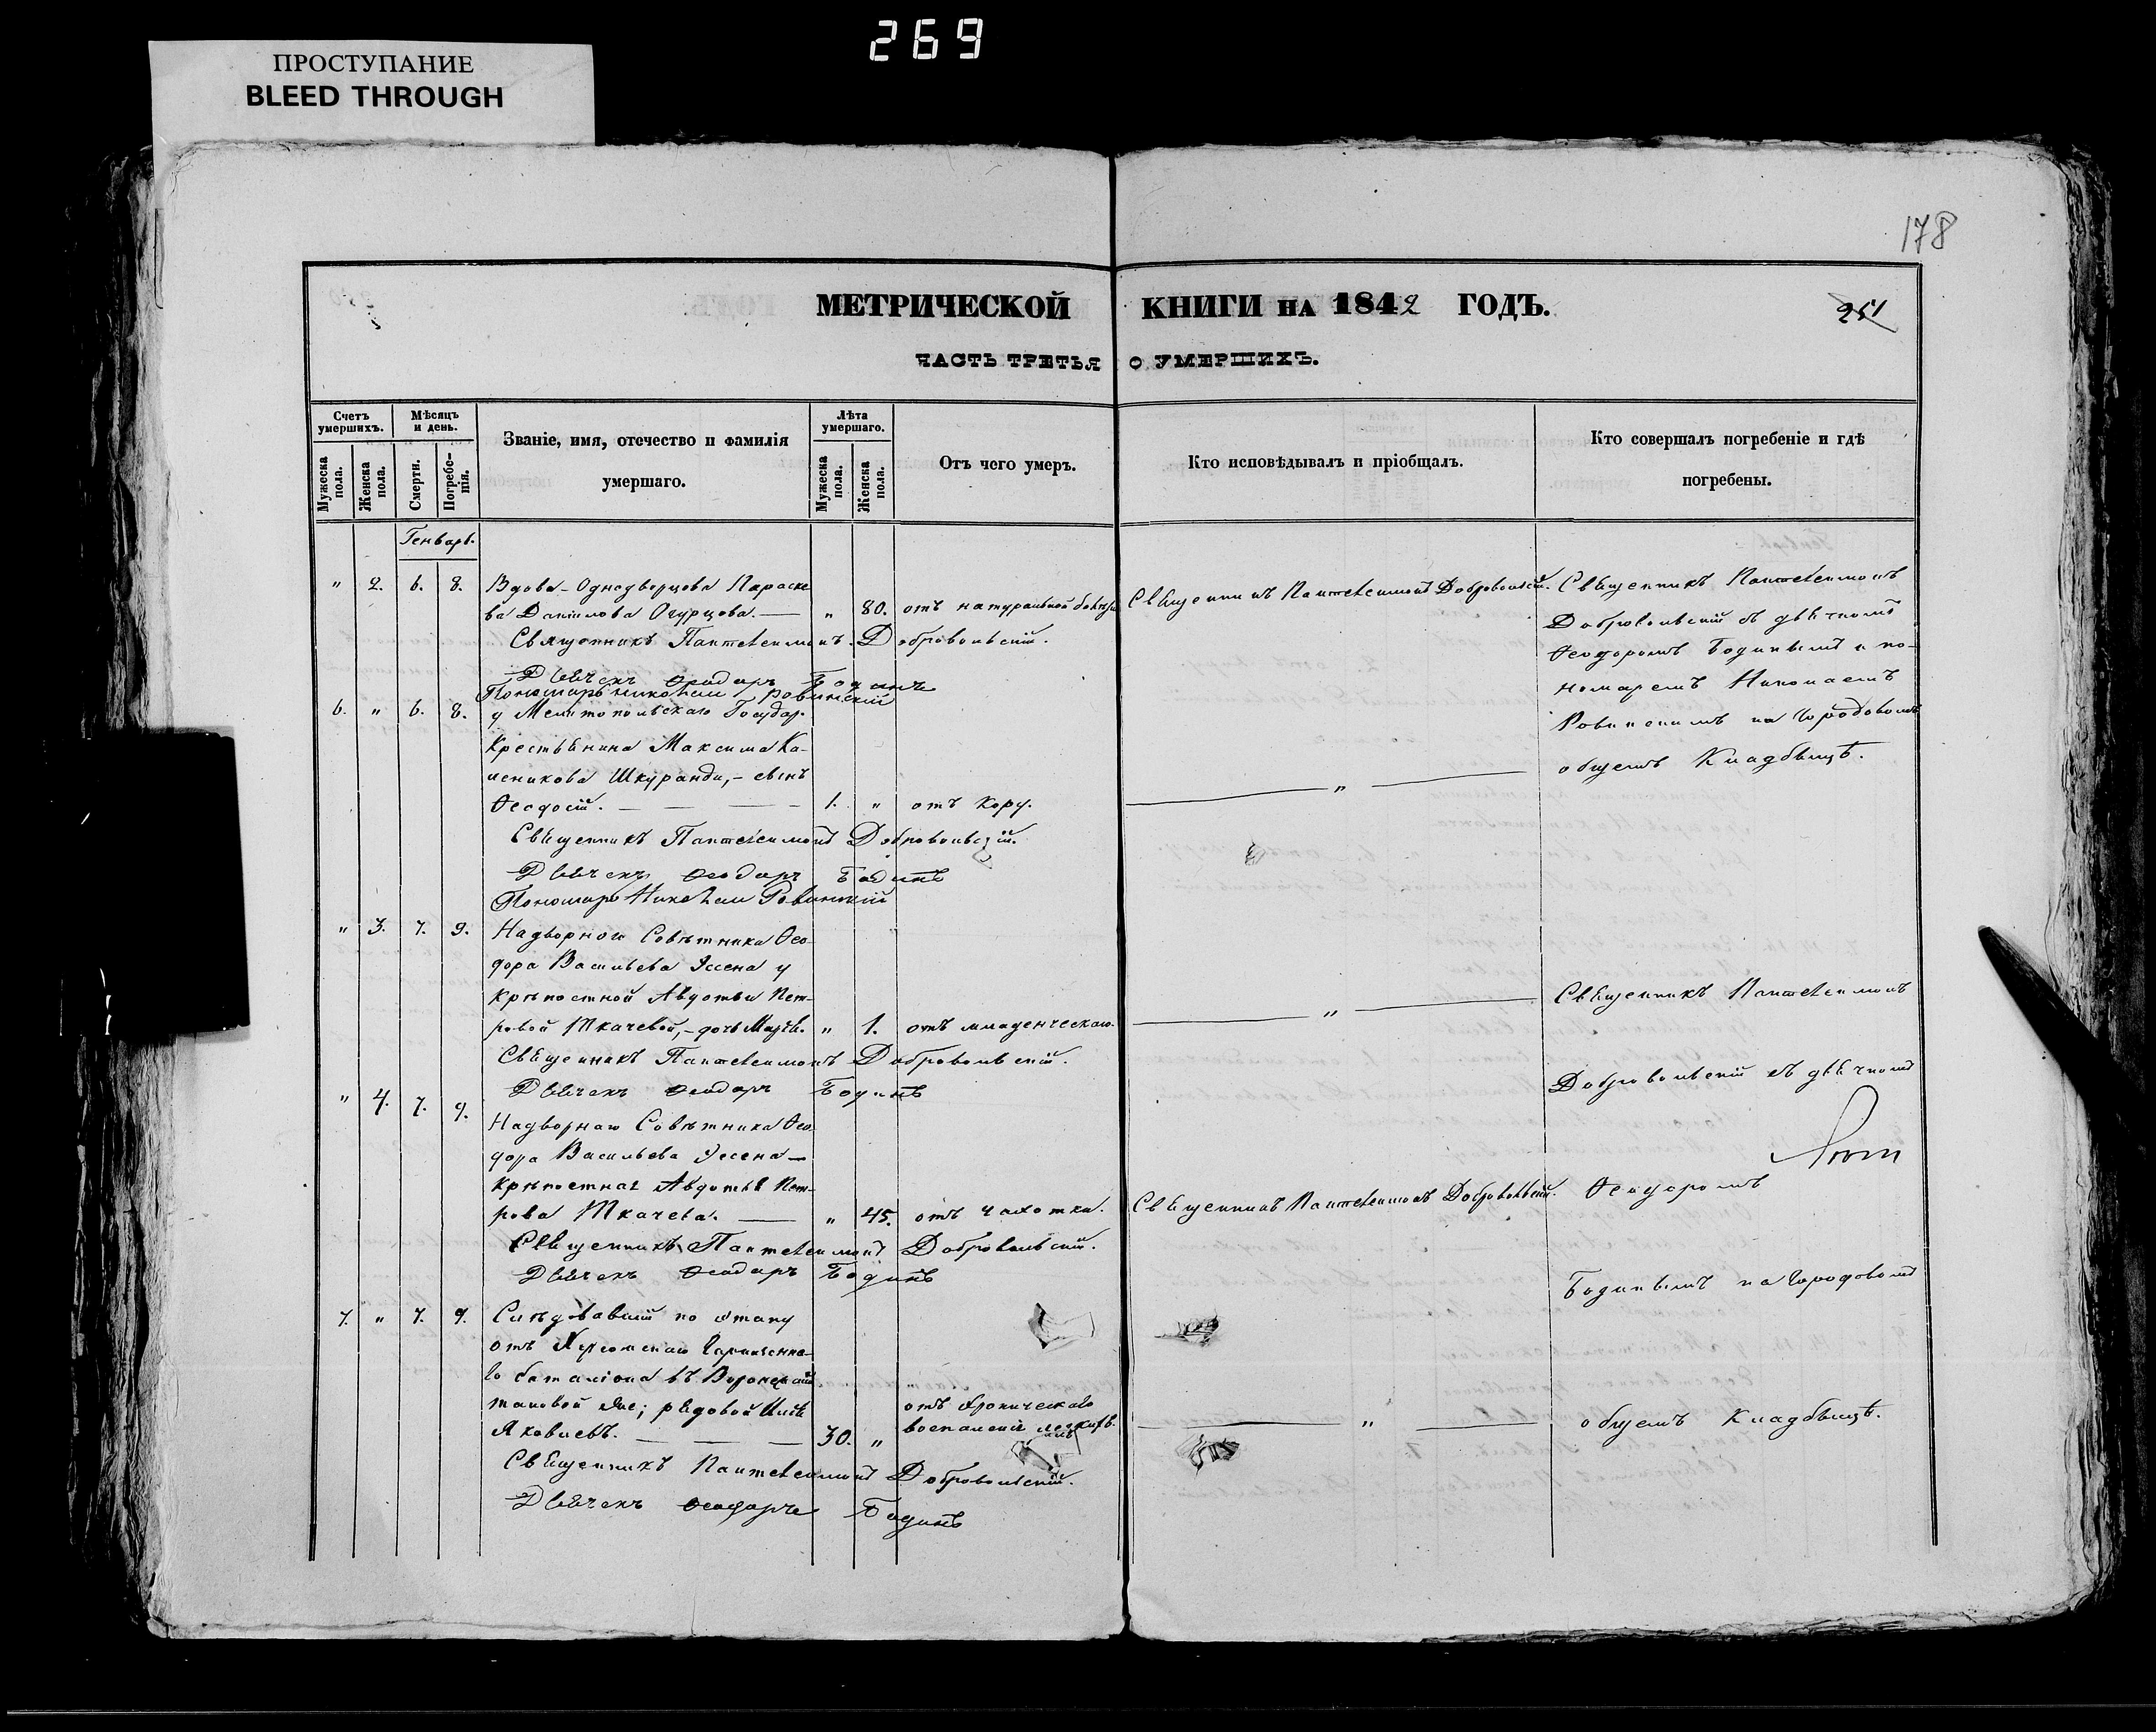 269
ПРОСТУПАНИЕ
BLEED THROUGH
178
МЕТРИЧЕСКОЙ КНИГИ НА 1842 ГОДЪ.
251
ЧАСТЬ ТРЕТЬЯ О УМЕРШИХЪ.
Счетъ умершихъ.
Мѣсяцъ и день.
Званіе, имя, отечество и фамилія умершаго.
Лѣта умершаго.
Отъ чего умеръ.
Кто исповѣдывалъ и пріобщалъ.
Кто совершалъ погребеніе и гдѣ погребены.
Мужеска пола.
Женска пола.
Смерти.
Погребенія.
Мужеска пола.
Женска пола.
Генварь.
" 2. 6. 8. Вдова Однодворцова Параске
ва Данилова Огурцова. — " 80. отъ натуральной
Священникъ Пантелеимонъ Добровольскій.
Священникъ Пантелеимонъ Добровольскій.
Дьячекъ Ѳеодоръ Бодинъ
Пономарь Николай Ровинскій
Священникъ Пантелеимонъ
Добровольскій съ дьячкомъ
Ѳеодоромъ Бодинымъ и по-
номаремъ Николаемъ
Ровинскимъ на Городовомъ
общемъ Кладбищѣ.
6. " 6. 8. у Мелитопольскаго Государ.
Крестьянина Максима Ко-
лесникова Шкуранди, – сынъ
Ѳеодосій. — — — 1. " отъ Кору. — " —
Священникъ Пантелеимонъ Добровольскій.
Дьячекъ Ѳеодоръ Бодинъ
Пономарь Николай Ровинскій
" 3. 7. 9. Надворнаго Совѣтника Ѳео
дора Васильева Эссена у
крѣпостной Авдотьи Пет-
ровой Ткачевой, – дочь " 1. отъ младенческаго. — " —
Священникъ Пантелеимонъ Добровольскій.
Дьячекъ Ѳеодоръ Бодинъ
Священникъ Пантелеимонъ
Добровольскій съ дьячкомъ
Ѳеодоромъ
Бодинымъ на Городовомъ
общемъ Кладбищѣ.
" 4. 7. 9. Надворнаго Совѣтника Ѳео
дора Васильева Эссена —
крѣпостная Авдотья Пет-
рова Ткачева. — " 45. отъ чахотки. Священникъ Пантелеимонъ Добровольскій.
Священникъ Пантелеимонъ Добровольскій.
Дьячекъ Ѳеодоръ Бодинъ
7. " 7. 9. Слѣдовавшій по этапу
отъ Херсонскаго Гарнизонна-
го баталіона въ
таковой же; рядовой
Яковлевъ. — — — 30. " отъ хроническаго
воспаленія легкихъ. — " —
Священникъ Пантелеимонъ Добровольскій.
Дьячекъ Ѳеодоръ Бодинъ